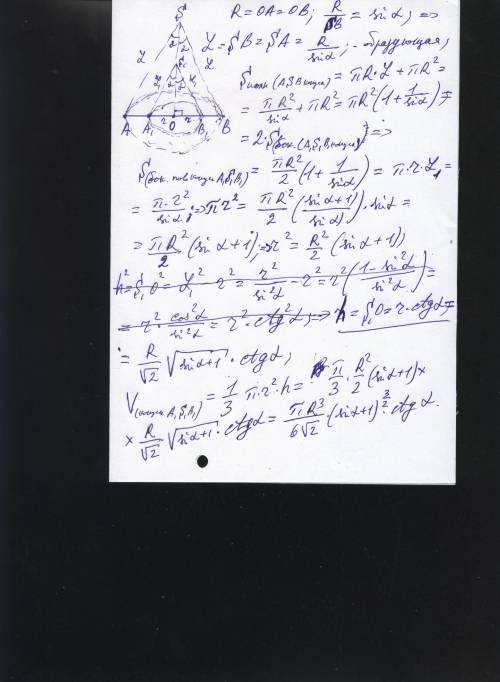 S
α α
L L
S₁
α α
L L
A A₁ r O r B₁ B
R = OA = OB; R/SB = sin α; =>
L = SB = SA = R/sin α; - образующая;
S полн (ASB конуса) = πR·L + πR² =
= πR²/sin α + πR² = πR²(1 + 1/sin α) =
= 2·S бок. (A₁S₁B₁ конуса) =>
S бок. пов конуса A₁S₁B₁ = πR²/2 (1 + 1/sin α) = π·r·L₁ =
= π·r²/sin α; => πr² = πR²/2 ((sin α+1)/sin α)·sin α =
= πR²/2 (sin α+1); => r² = R²/2 (sin α+1)
h² = S₁O² = L₁² - r² = r²/sin²α - r² = r²((1-sin²α)/sin²α) =
= r²·cos²α/sin²α = r²·ctg²α; => h = S₁O = r·ctgα =
= R/√2 √(sin α+1)·ctgα;
V (конуса A₁S₁B₁) = 1/3 π·r²·h = π/3·R²/2 (sin α+1)×
× R/√2 √(sin α+1)·ctgα = πR³/6√2 (sin α+1)^(3/2)·ctg α.